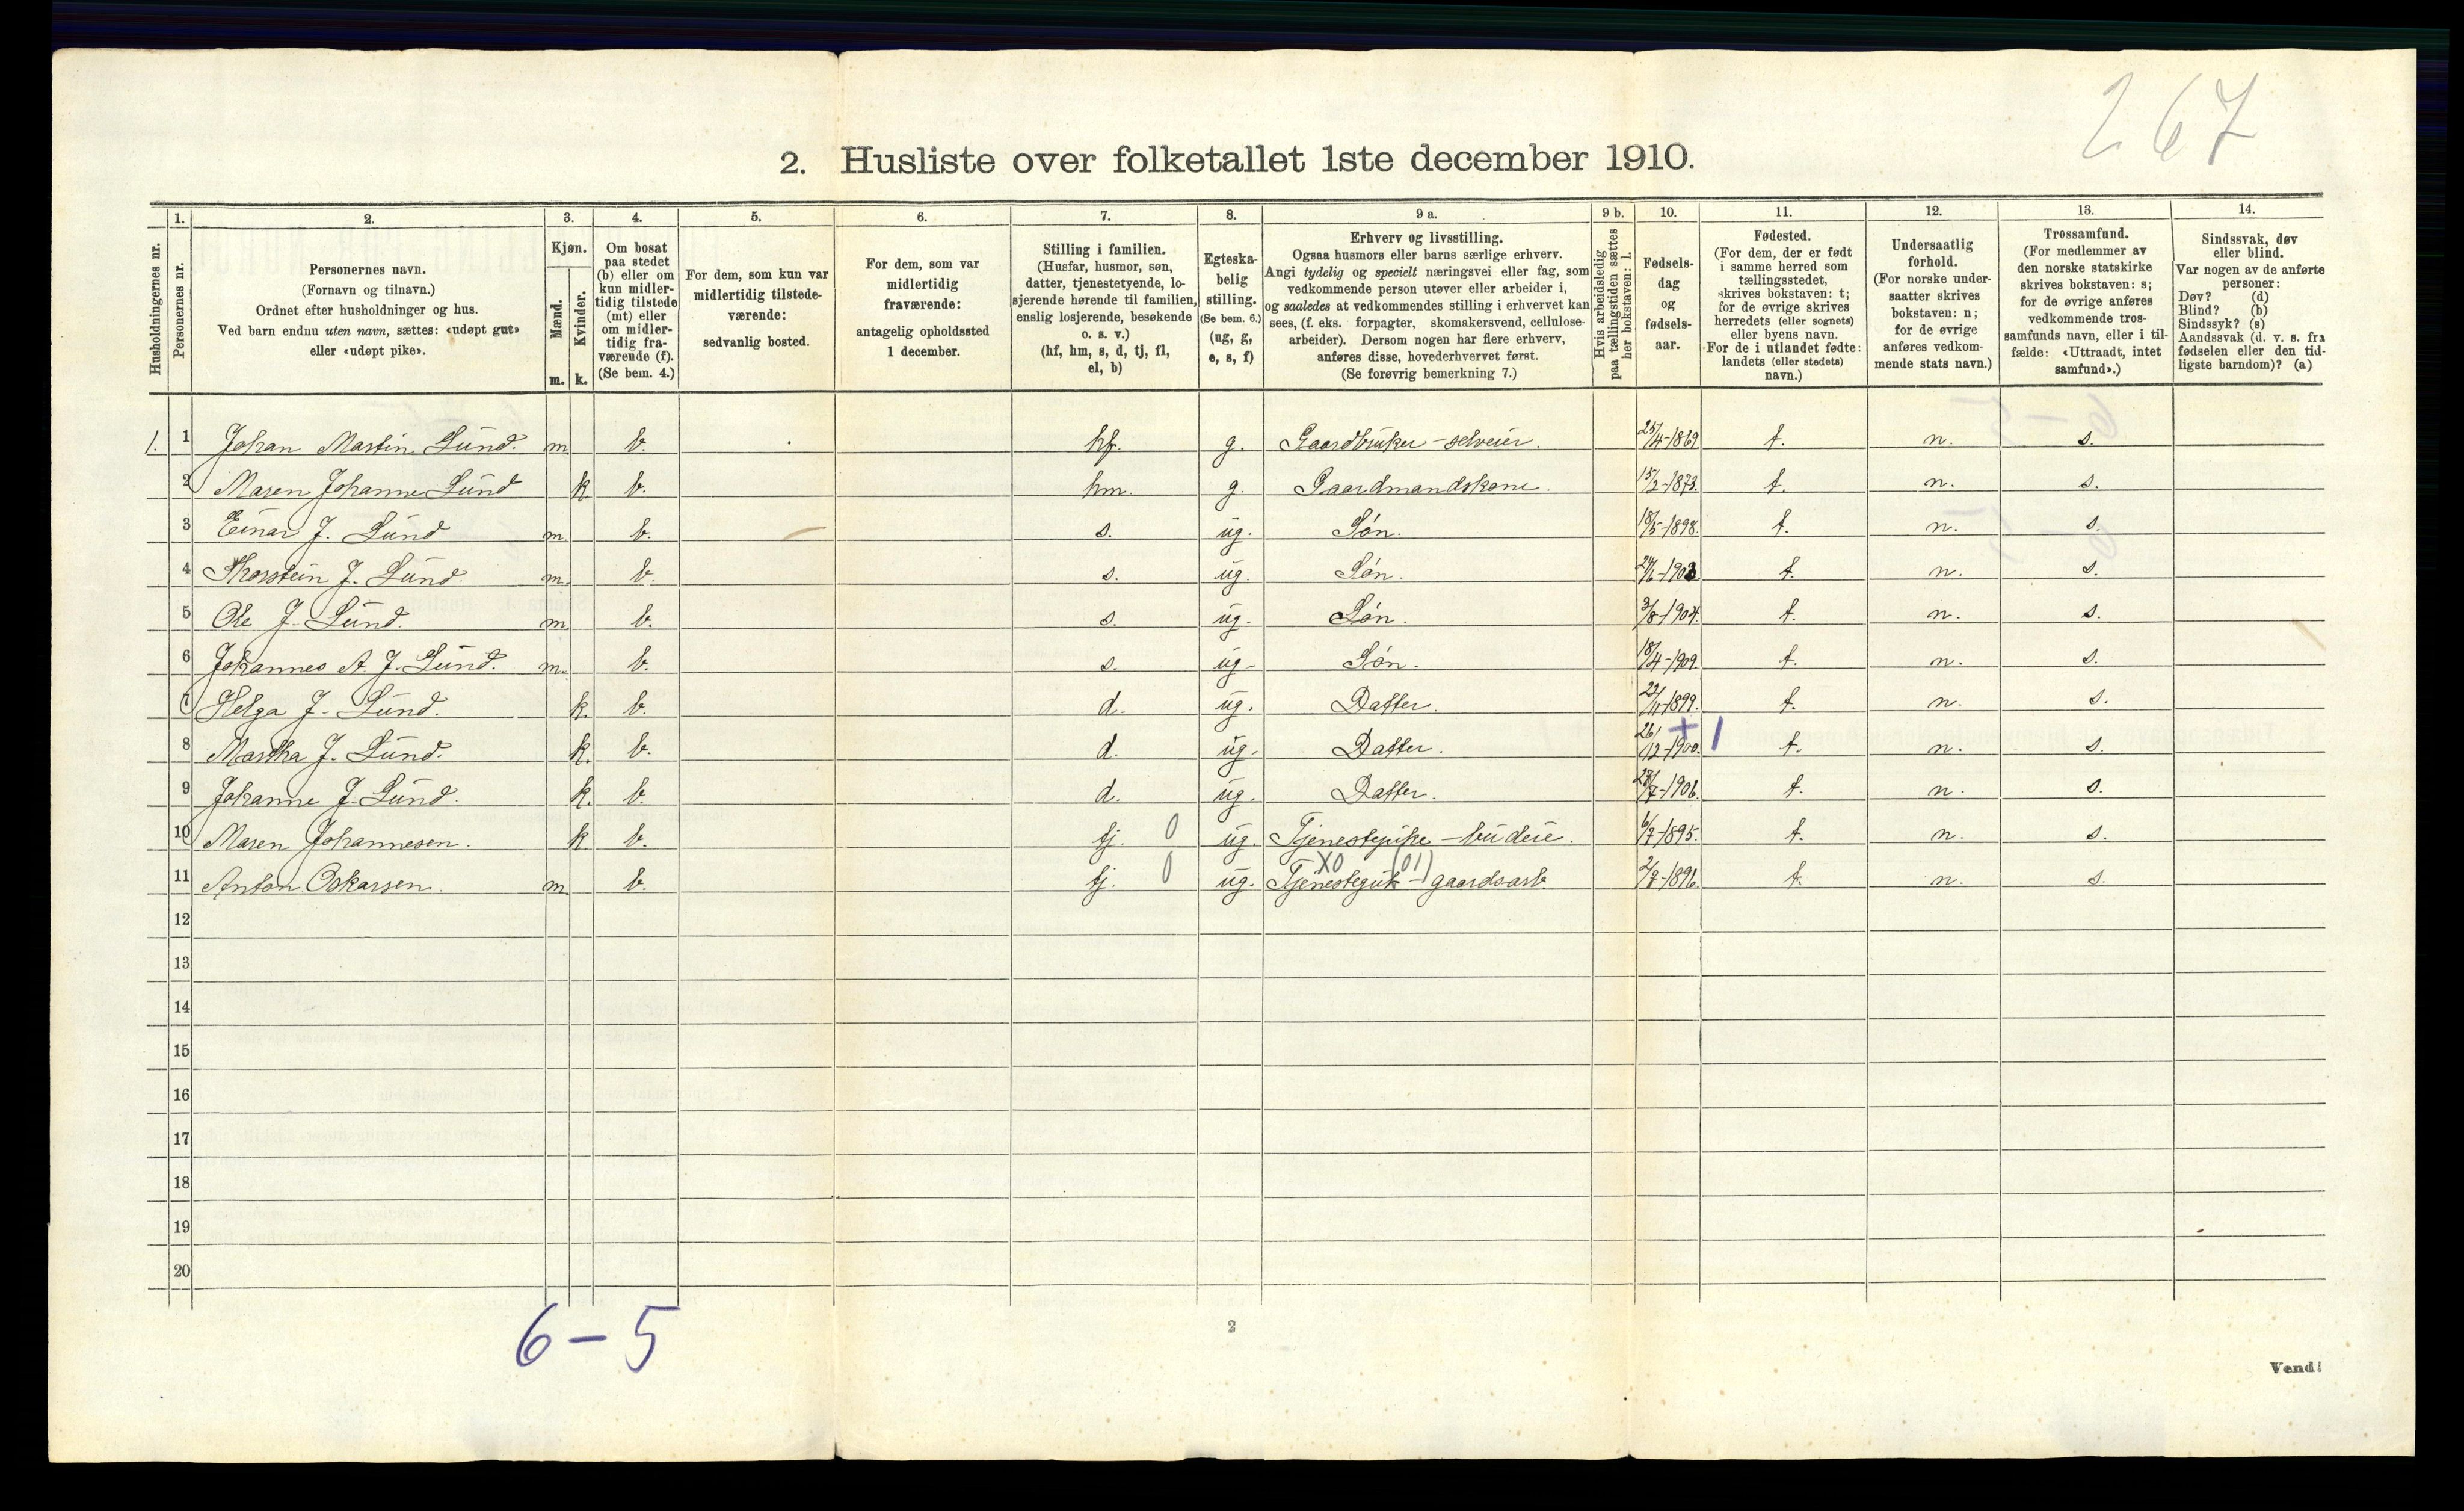 267
2. Husliste over folketallet 1ste december 1910.
1. 2. 3. 4. 5. 6. 7. 8. 9 a. 9 b. 10. 11. 12. 13. 14.
Husholdningernes nr.
Personernes nr.
Personernes navn.
(Fornavn og tilnavn.)
Ordnet efter husholdninger og hus.
Ved barn endnu uten navn, sættes: «udøpt gut»
eller «udøpt pike».
Kjøn.
Mænd.
Kvinder.
m. k.
Om bosat
paa stedet
(b) eller om
kun midler-
tidig tilstede
(mt) eller
om midler-
tidig fra-
værende (f).
(Se bem. 4.)
For dem, som kun var
midlertidig tilstede-
værende:
sedvanlig bosted.
For dem, som var
midlertidig
fraværende:
antagelig opholdssted
1 december.
Stilling i familien.
(Husfar, husmor, søn,
datter, tjenestetyende, lo-
sjerende hørende til familien,
enslig losjerende, besøkende
o. s. v.)
(hf, hm, s, d, tj, fl,
el, b)
Egteska-
belig
stilling.
(Se bem. 6.)
(ug, g,
e, s, f)
Erhverv og livsstilling.
Ogsaa husmors eller barns særlige erhverv.
Angi tydelig og specielt næringsvei eller fag, som
vedkommende person utøver eller arbeider i,
og saaledes at vedkommendes stilling i erhvervet kan
sees, (f. eks. forpagter, skomakersvend, cellulose-
arbeider). Dersom nogen har flere erhverv,
anføres disse, hovederhvervet først.
(Se forøvrig bemerkning 7.)
Hvis arbeidsledig
paa tællingstiden sættes
her bokstaven: l.
Fødsels-
dag
og
fødsels-
aar.
Fødested.
(For dem, der er født
i samme herred som
tællingsstedet,
skrives bokstaven: t;
for de øvrige skrives
herredets (eller sognets)
eller byens navn.
For de i utlandet fødte:
landets (eller stedets)
navn.)
Undersaatlig
forhold.
(For norske under-
saatter skrives
bokstaven: n;
for de øvrige
anføres vedkom-
mende stats navn.)
Trossamfund.
(For medlemmer av
den norske statskirke
skrives bokstaven: s;
for de øvrige anføres
vedkommende tros-
samfunds navn, eller i til-
fælde: «Uttraadt, intet
samfund».)
Sindssvak, døv
eller blind.
Var nogen av de anførte
personer:
Døv? (d)
Blind? (b)
Sindssyk? (s)
Aandssvak (d. v. s. fra
fødselen eller den tid-
ligste barndom)? (a)
1. 1 Johan Martin Lund. m b. hf. g. Gaardbruker - selveier. 25/4-1869 t. n. s.
2 Maren Johanne Lund k b. hm. g. Gaardmandskone. 15/2-1873. t. n. s.
3 Einar J. Lund m b. s. ug. Søn. 18/5-1898. t. n. s.
4 Thorstein J. Lund. m. b. s. ug. Søn. 24/6-1903 t. n. s.
5 Ole J. Lund. m b. s. ug. Søn. 3/8-1904. t. n. s.
6 Johannes A J. Lund. m. b. s. ug- Søn. 18/4-1909. t. n. s.
7 Helga J. Lund. k. b. d. ug. Datter. 22/11-1899. t. n. s.
+1
8 Martha J. Lund. k. b. d. ug. Datter. 26/12-1900. t. n. s.
9 Johanne J. Lund. k. b. d. ug. Datter. 28/7-1906. t. n. s.
10 Maren Johannesen. k b. tj. 0 ug. Tjenestepike - budeie. 6/7-1895. t. n. s.
X0 (01)
11 Anton Oskarsen. m b. tj. 0 ug. Tjenestegut - gaardsarb. 2/8-1896. t. n. s.
12
13
14
15
16
17
18
19
20
6-5
2
Vend!